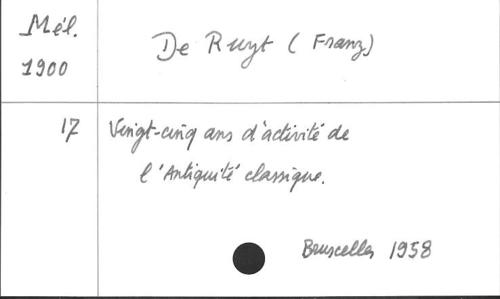 Mél.
1900
De Ruyt (Franz)
17
Vingt-cinq ans d'activité de
l'Antiquité classique.
Bruxelles 1958